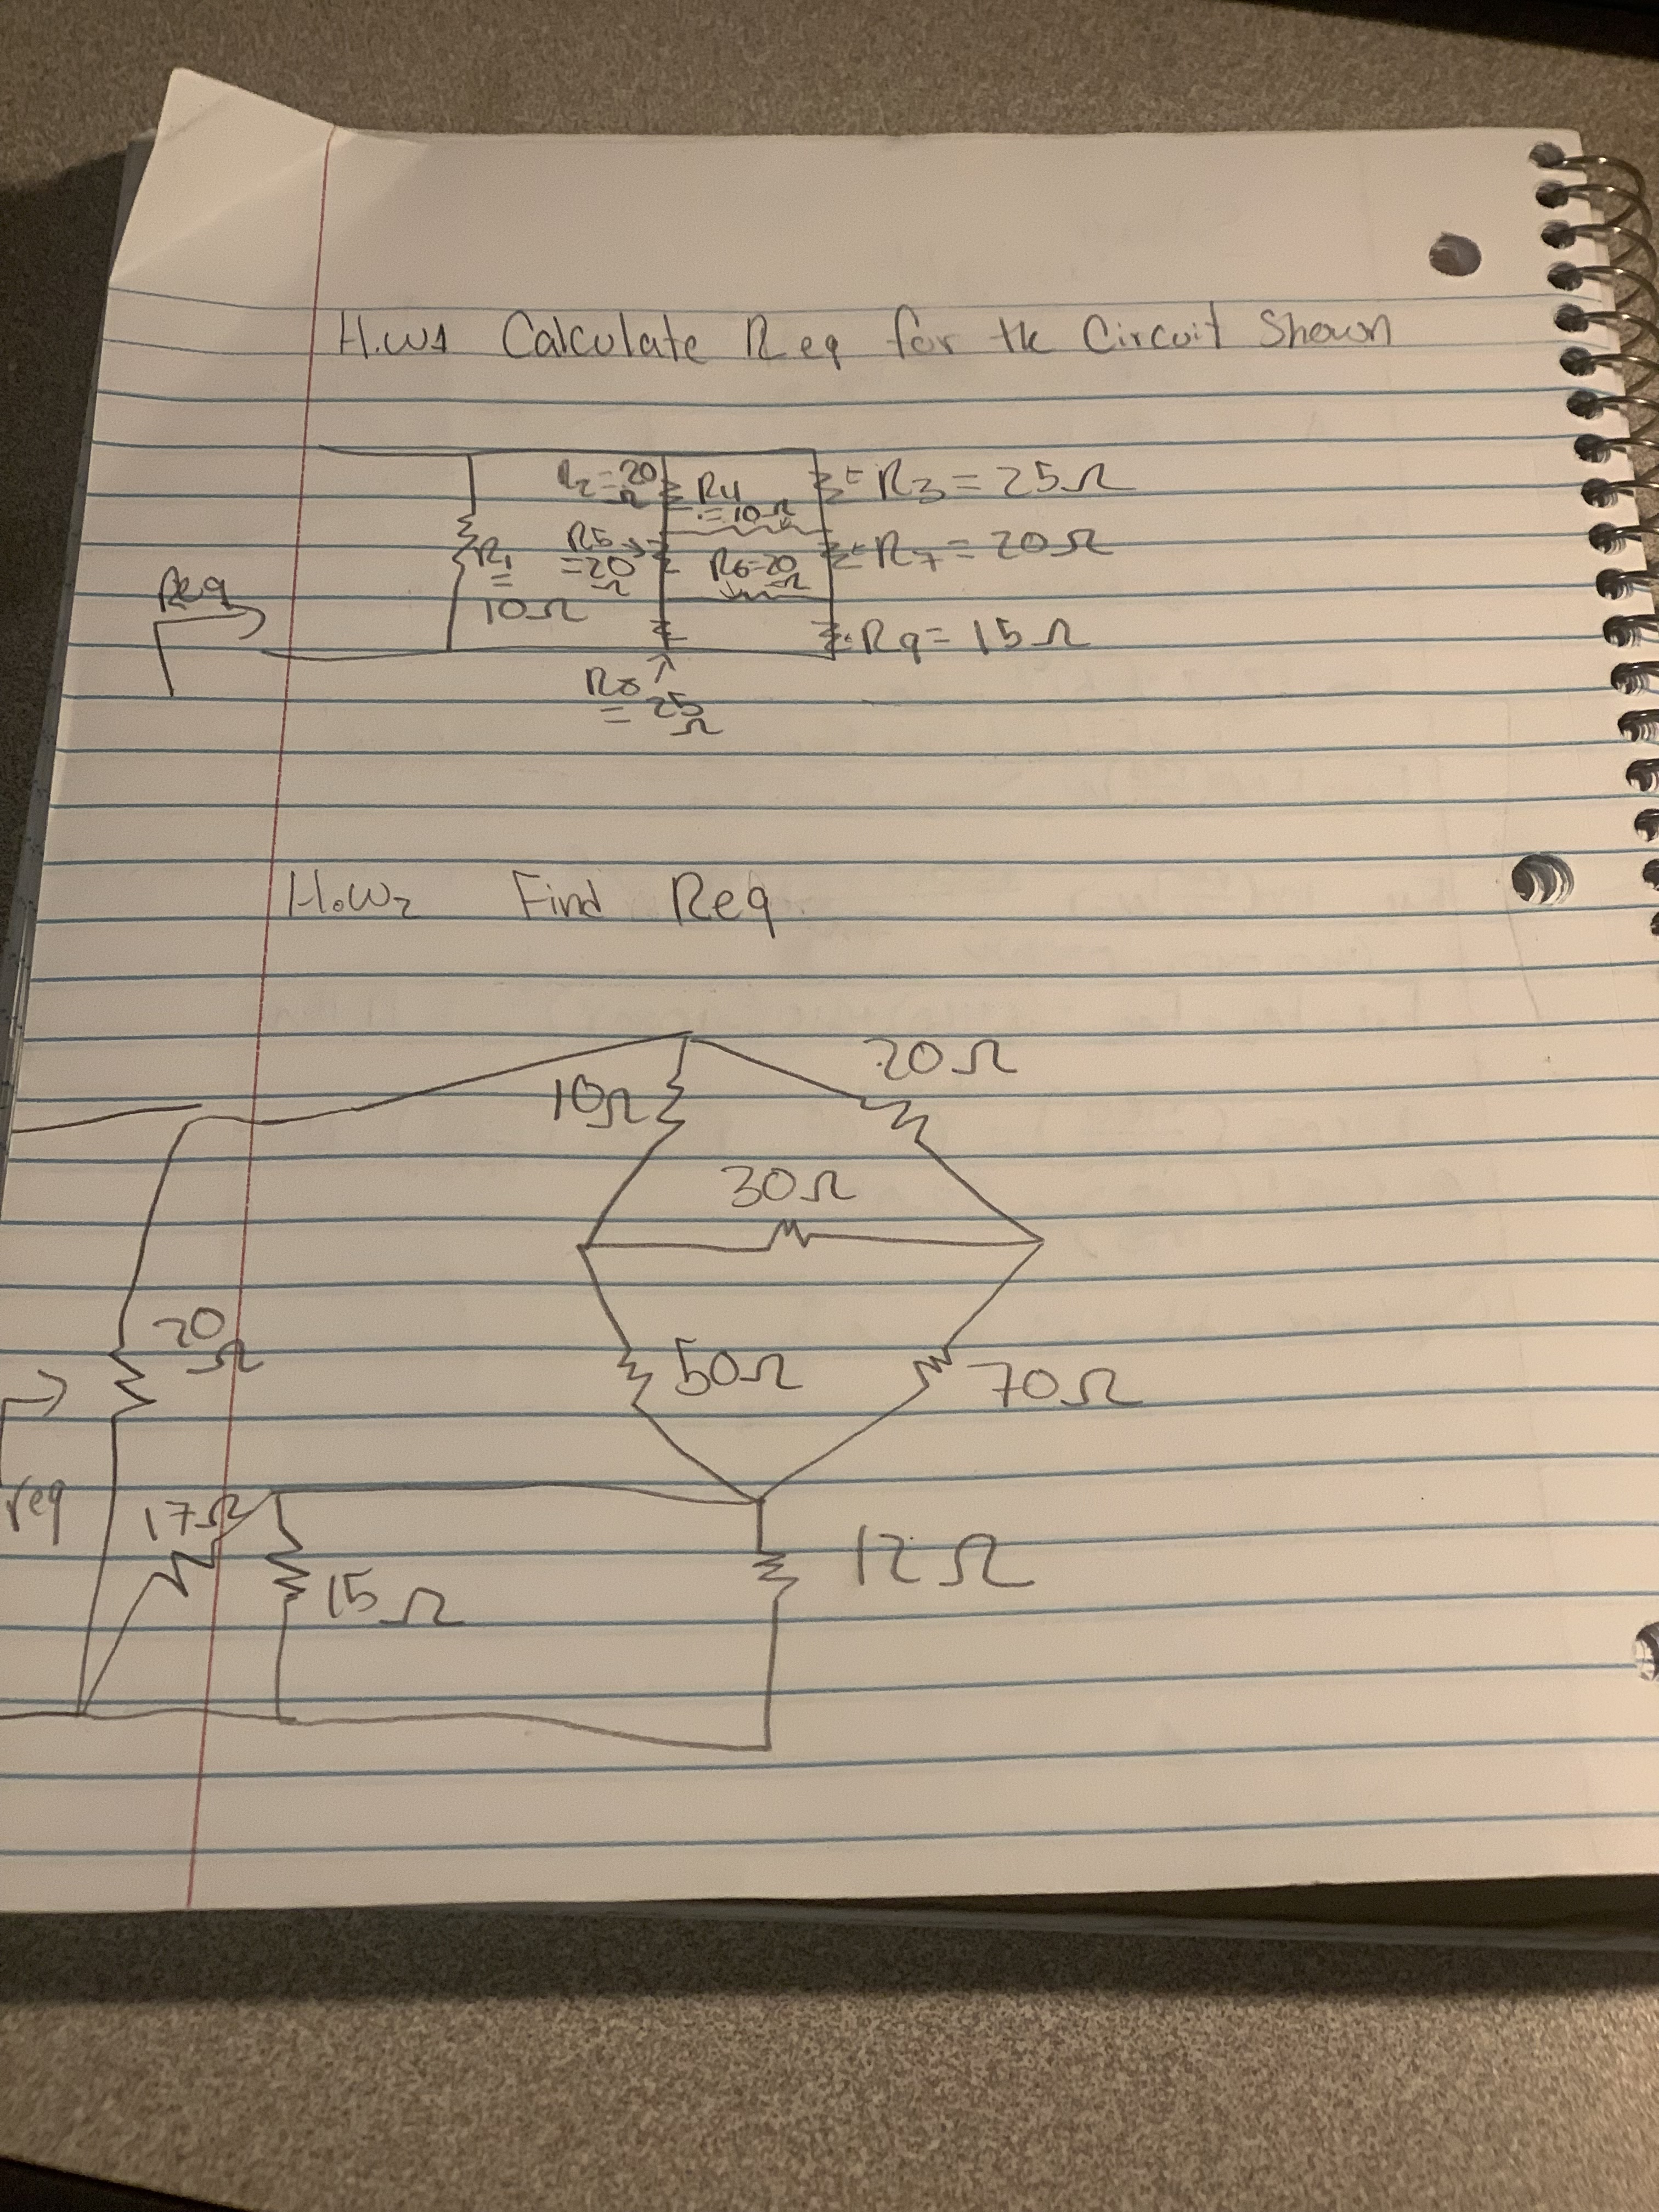 H.W1 Calculate Req for the Circuit Shown
R2=20Ω
R4=10Ω
R3=25Ω
R1=10Ω
R5=20Ω
R6=20Ω
R7=20Ω
Req
R9=15Ω
R8=25Ω
H.W2 Find Req
20Ω
10Ω
30Ω
20Ω
50Ω
70Ω
req
17Ω
15Ω
12Ω